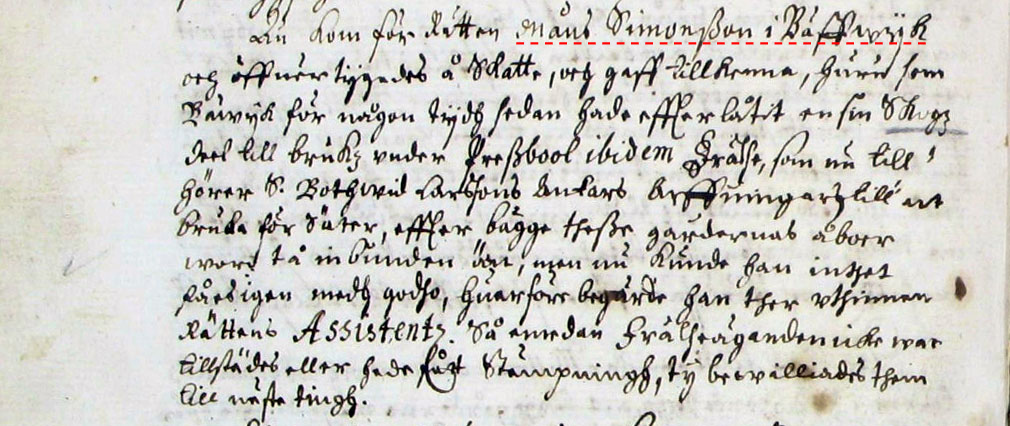 Nu kom för Rätten Måns Simonßon i Bäffwijk
och öffuertygades å Skatte, och gaff tillkenna, huru som
Bäwijk för någon tijdh sedan hade effterlåtit en sin Skogz
deel till brukz vnder Preßbool ibidem Frälse, som nu till
hörer S. Bothwid Larssons Ankars Arffuingar, till at
bruka för Säter, effter bägge theße gårdernas åboer
wore tå inbunden, men nu kunde han intet
fåes igen medh godho, huarföre begärde han ther vthinnen
Rättens Assistentz. Så emedan Frälseäganden icke war
tillstädes eller hade fått Stempningh, ty bewilliades them
till nästa tingh.